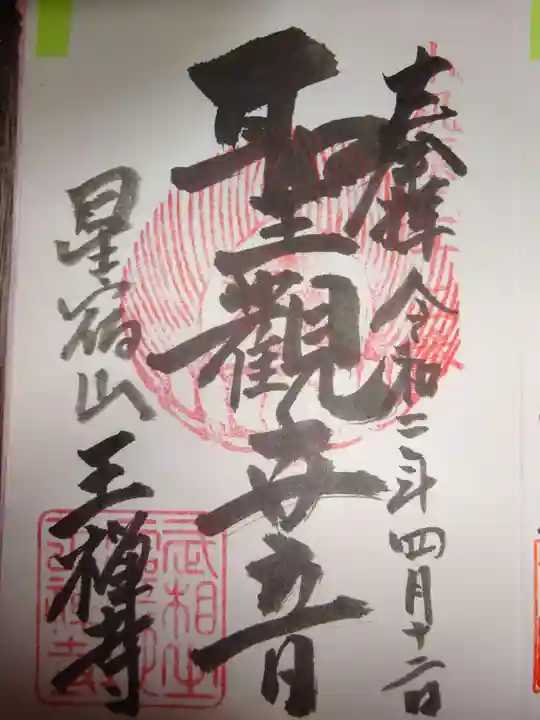 奉拝 令和二年四月十二日
聖觀世音
星宿山 王禅寺